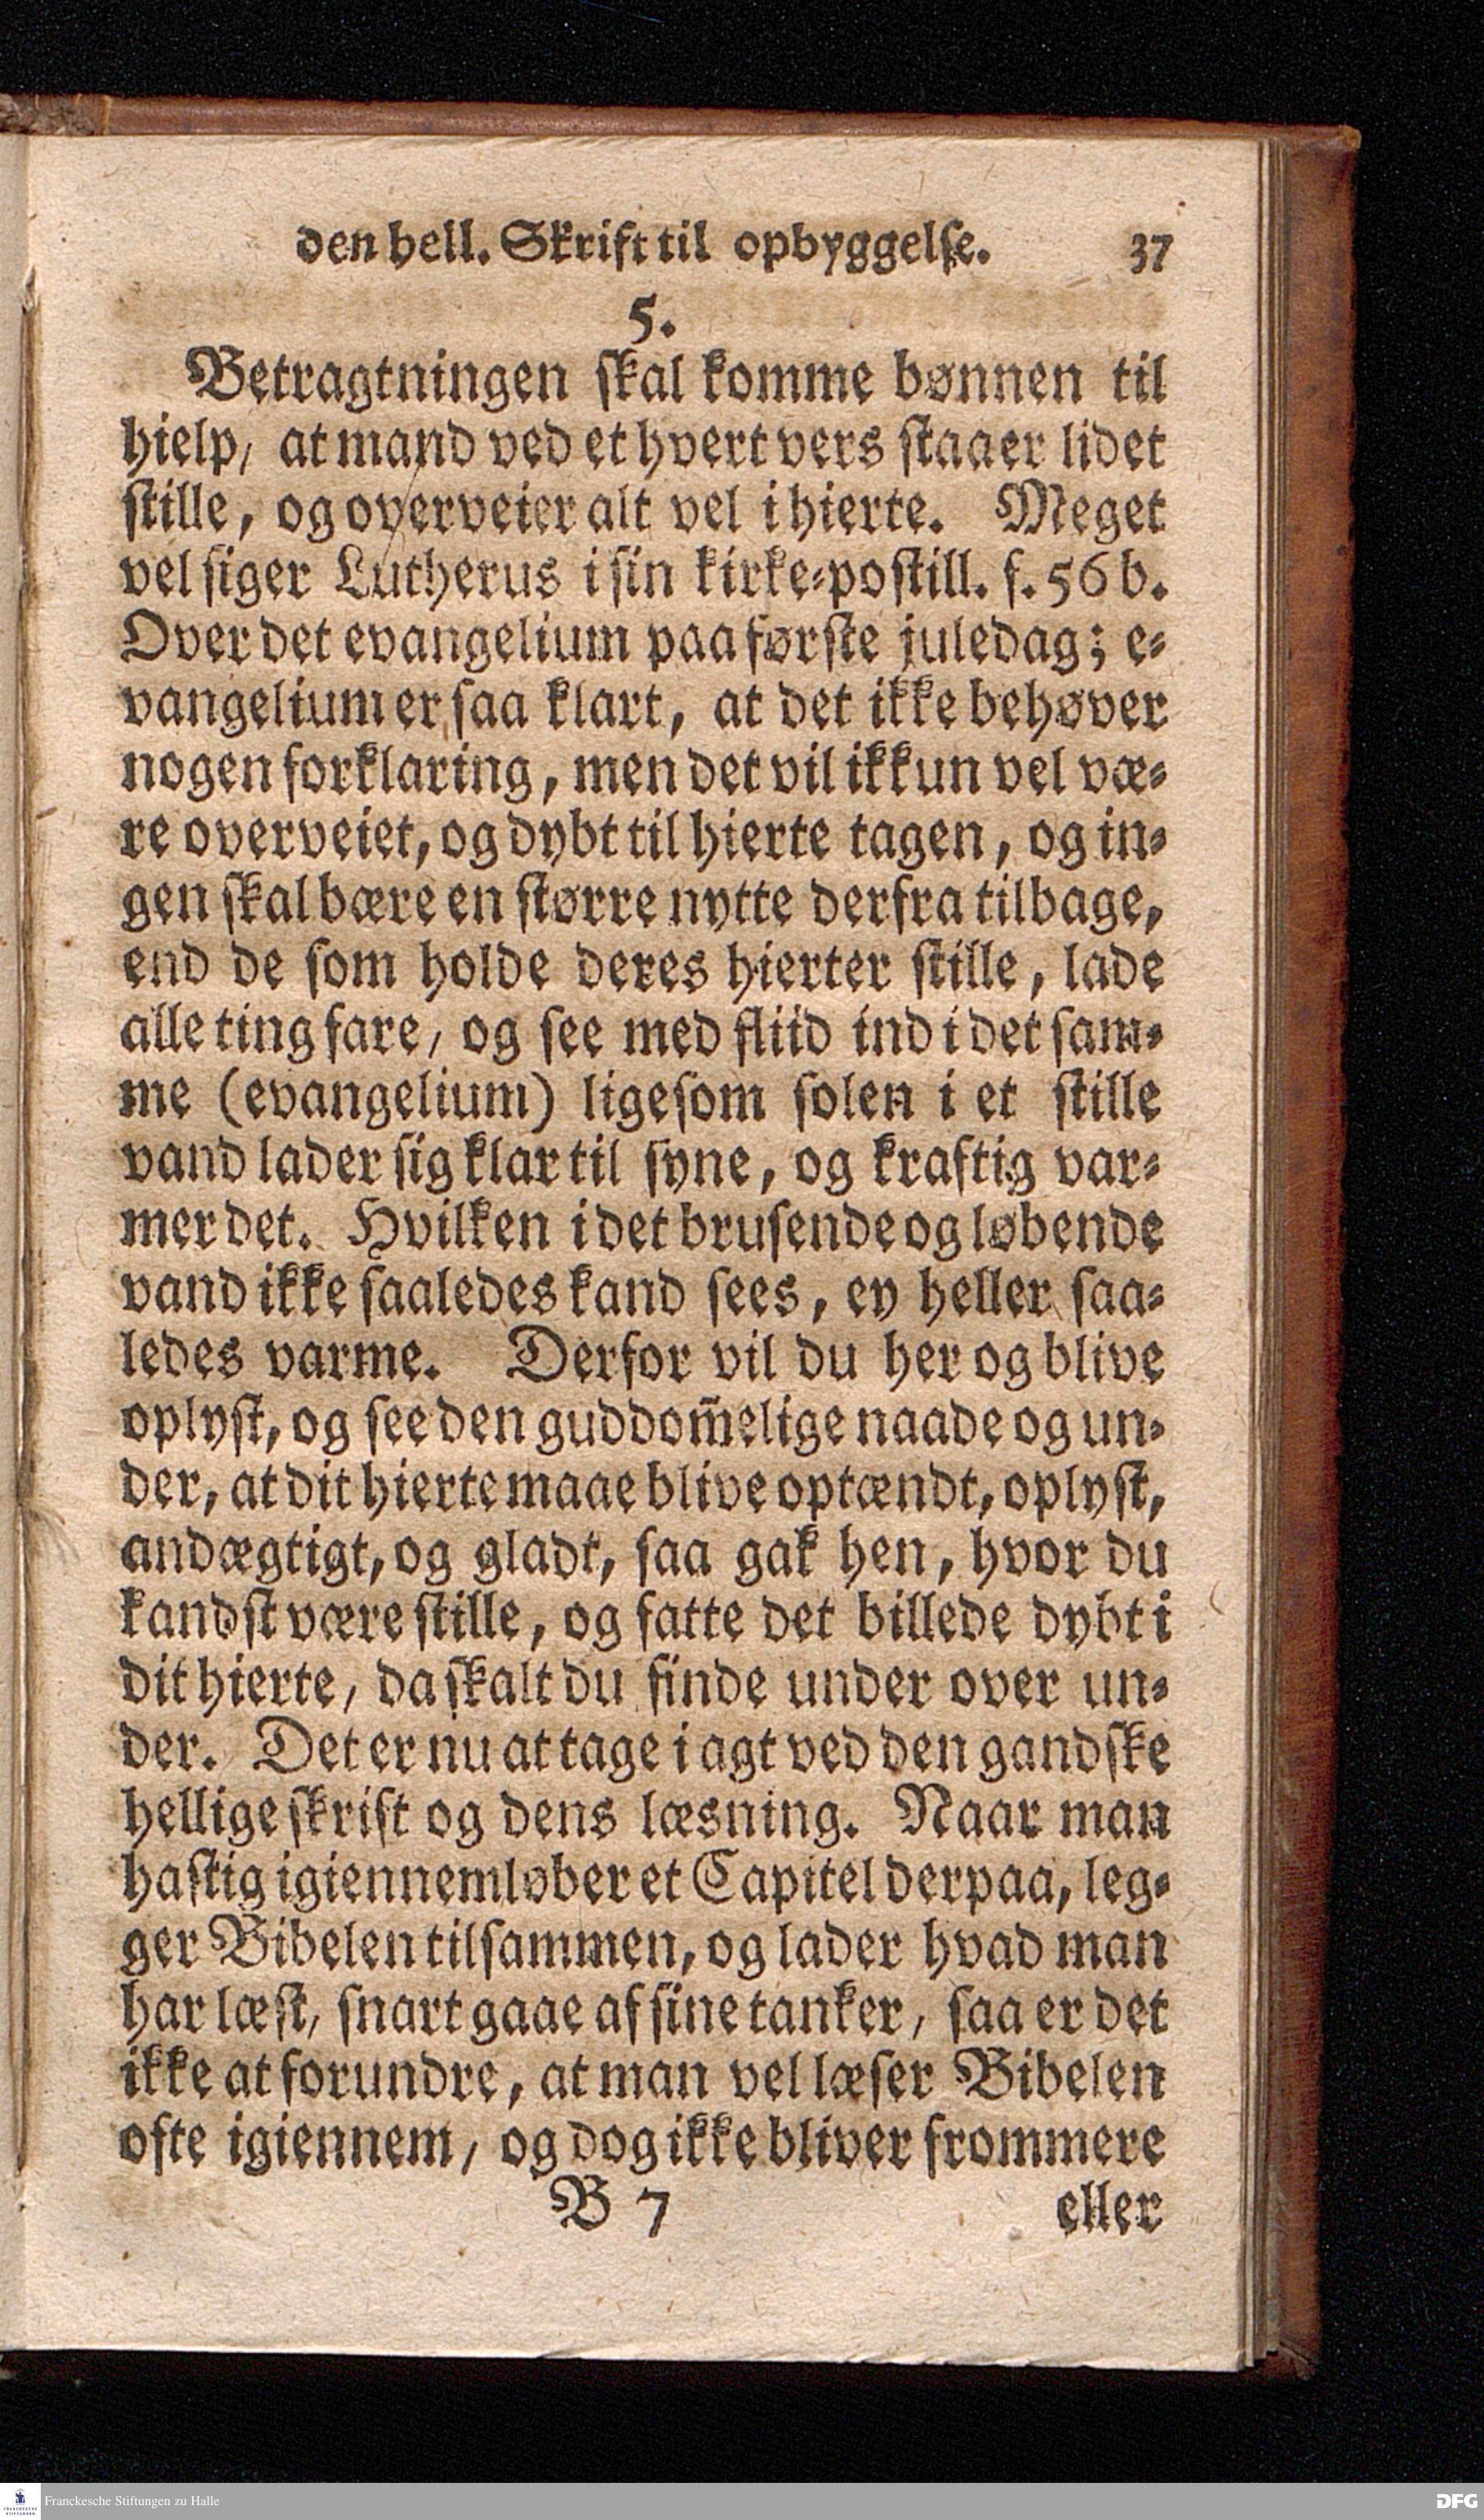 den hell. Skrift til opbyggelse. 37
5.
Betragtningen skal komme bønnen til
hielp, at mand ved et hvert vers staaer lidet
stille, og overveier alt vel i hierte. Meget
vel siger Lutherus i sin kirke-postill. f. 56 b.
Over det evangelium paa første juledag; e-
vangelium er saa klart, at det ikke behøver
nogen forklaring, men det vil ikkun vel væ-
re overveiet, og dybt til hierte tagen, og in-
gen skal bære en større nytte derfra tilbage,
end de som holde deres hierter stille, lade
alle ting fare, og see med fliid ind i det sam-
me (evangelium) ligesom solen i et stille
vand lader sig klar til syne, og kraftig var-
mer det. Hvilken i det brusende og løbende
vand ikke saaledes kand sees, ey heller saa-
ledes varme. Derfor vil du her og blive
oplyst, og see den guddom̃elige naade og un-
der, at dit hierte maae blive optændt, oplyst,
andægtigt, og gladt, saa gak hen, hvor du
kandst være stille, og fatte det billede dybt i
dit hierte, da skalt du finde under over un-
der. Det er nu at tage i agt ved den gandske
hellige skrift og dens læsning. Naar man
hastig igiennemløber et Capitel derpaa, leg-
ger Bibelen tilsammen, og lader hvad man
har læst, snart gaae af sine tanker, saa er det
ikke at forundre, at man vel læser Bibelen
ofte igiennem, og dog ikke bliver frommere
B 7 eller
Franckesche Stiftungen zu Halle
DFG